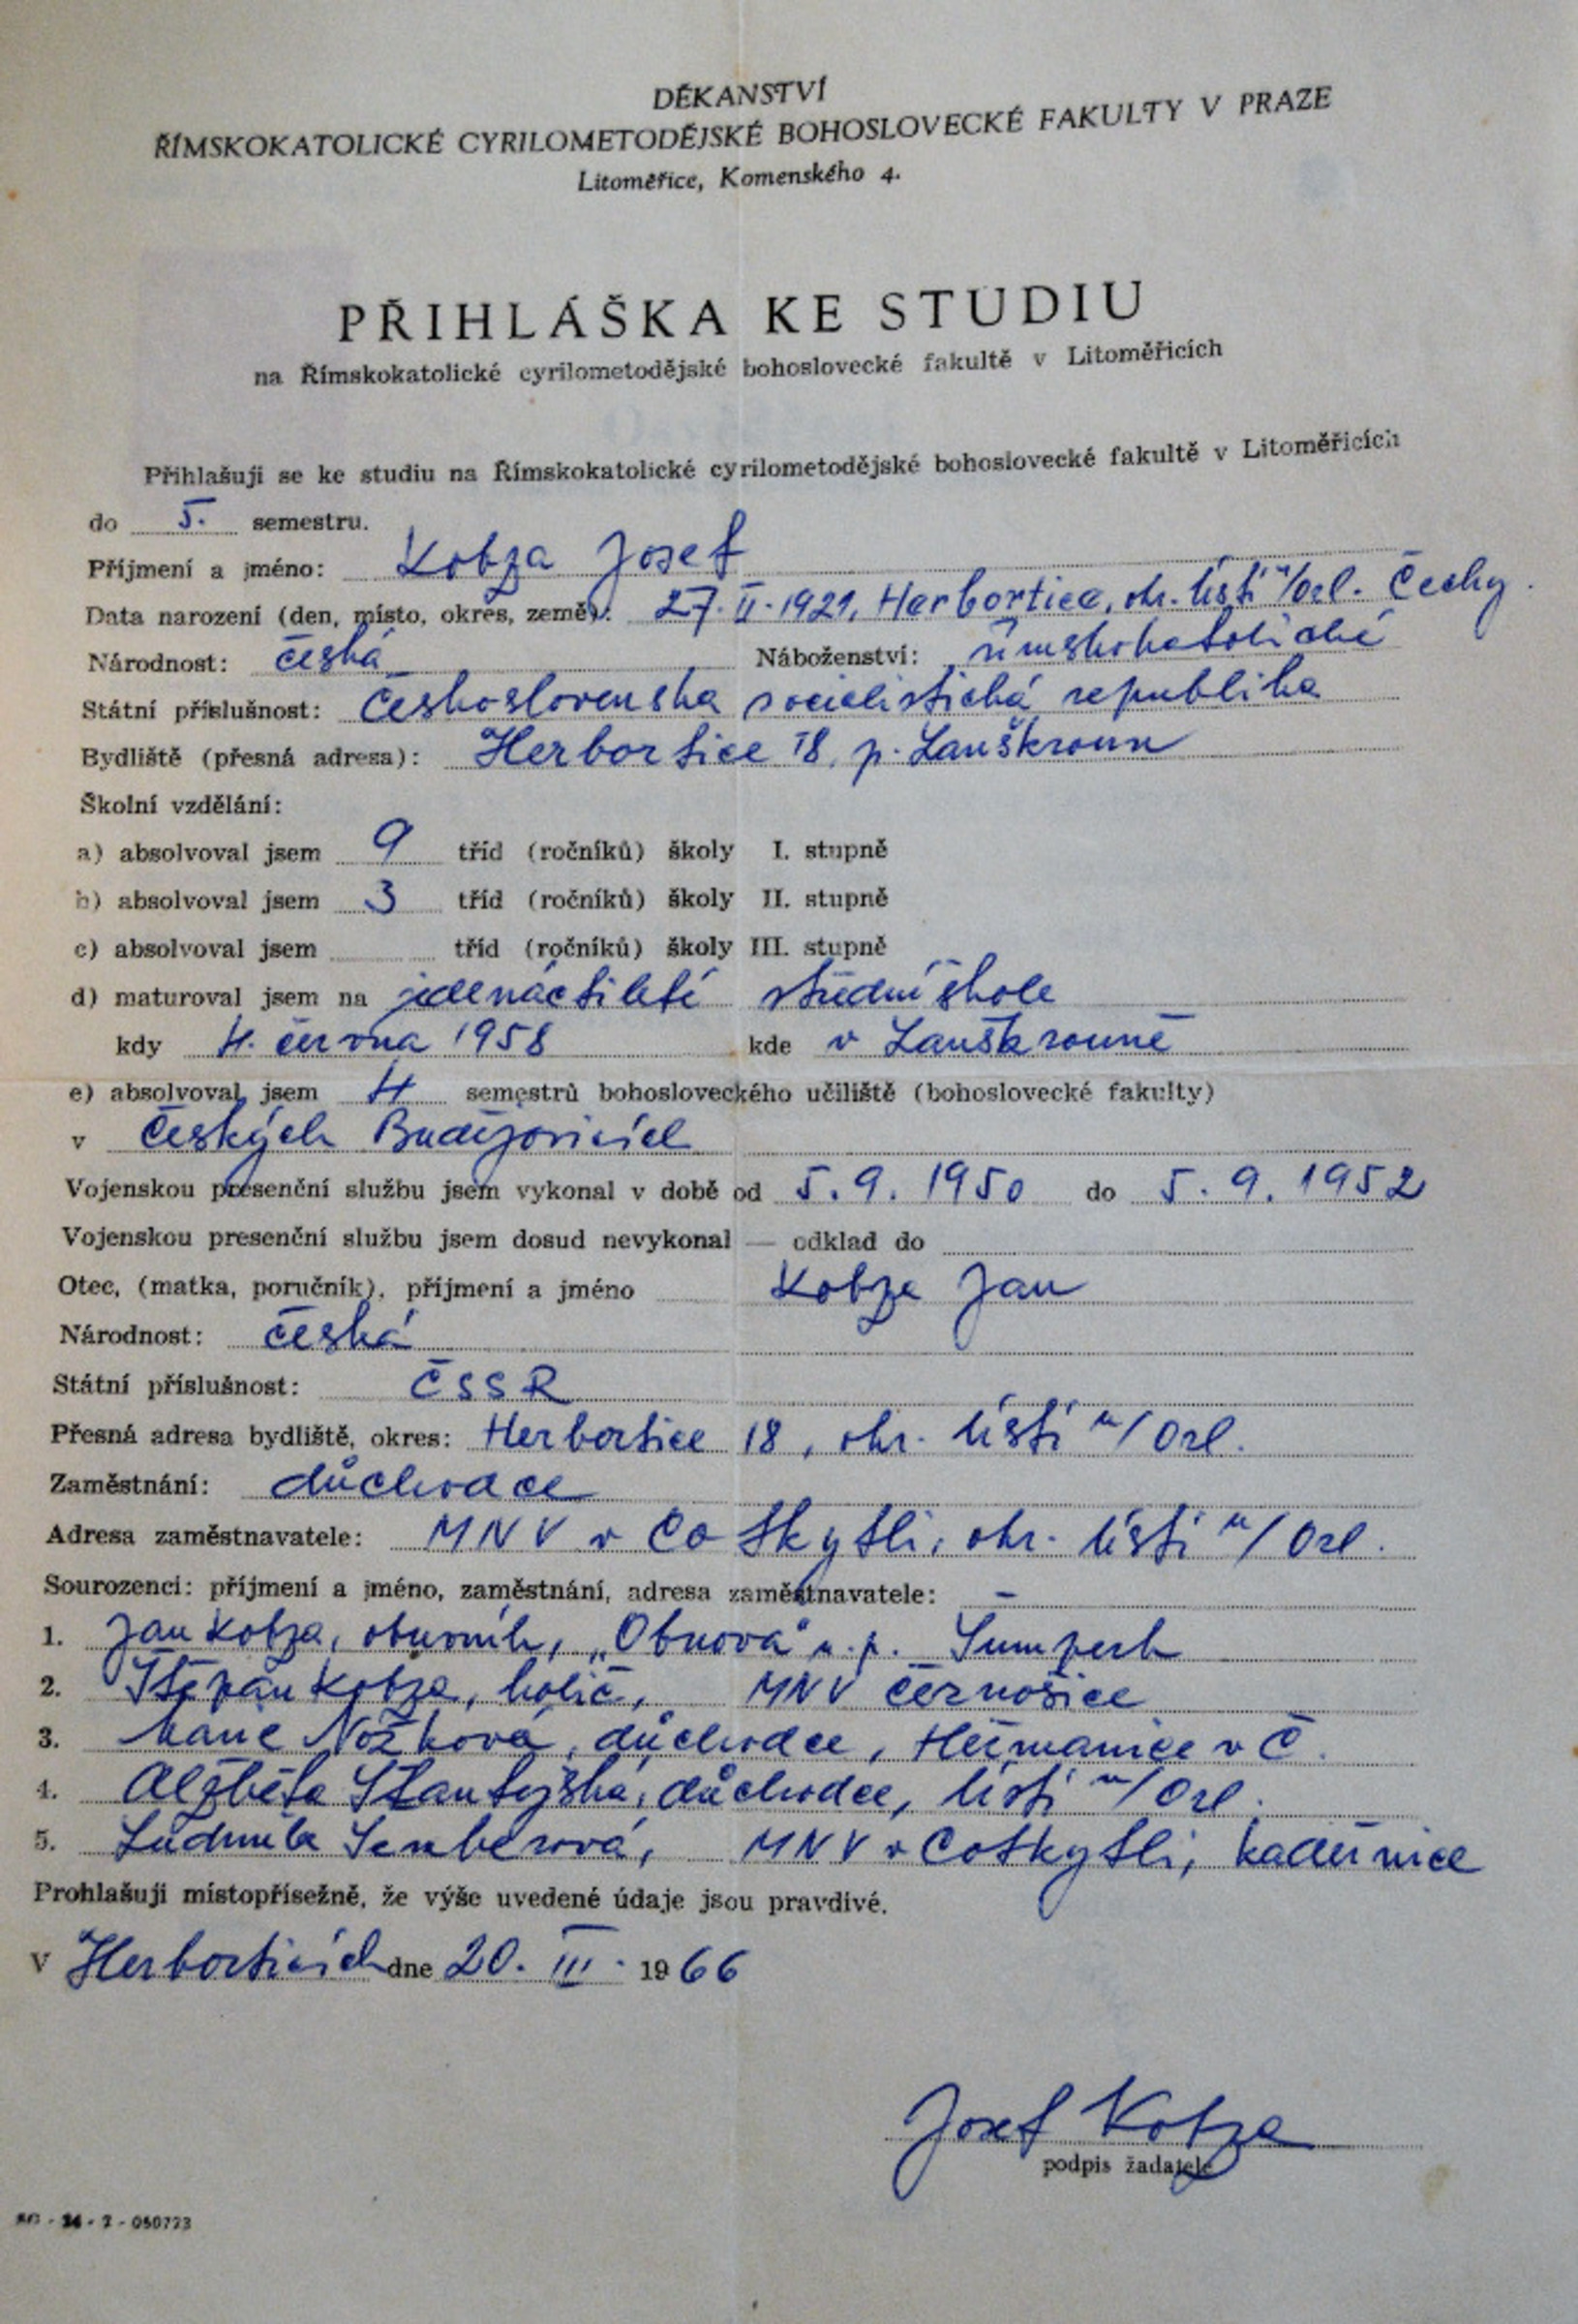 DĚKANSTVÍ
ŘÍMSKOKATOLICKÉ CYRILOMETODĚJSKÉ BOHOSLOVECKÉ FAKULTY V PRAZE
Litoměřice, Komenského 4.
PŘIHLÁŠKA KE STUDIU
na Římskokatolické cyrilometodějské bohoslovecké fakultě v Litoměřicích
Přihlašuji se ke studiu na Římskokatolické cyrilometodějské bohoslovecké fakultě v Litoměřicích
do 5. semestru.
Příjmení a jméno: Kobza Josef
Data narození (den, místo, okres, země): 27. II. 1921, Herbortice, okr. Ústí n/Orl. Čechy.
Národnost: česká Náboženství: římskokatolické
Státní příslušnost: Československa socialistická republika
Bydliště (přesná adresa): Herbortice 18, p. Lanškroun
Školní vzdělání:
a) absolvoval jsem 9 tříd (ročníků) školy I. stupně
b) absolvoval jsem 3 tříd (ročníků) školy II. stupně
c) absolvoval jsem tříd (ročníků) školy III. stupně
d) maturoval jsem na jedenáctileté střední škole
kdy 4. června 1958 kde v Lanškrouně
e) absolvoval jsem 4 semestrů bohosloveckého učiliště (bohoslovecké fakulty)
v Českých Budějovicích
Vojenskou presenční službu jsem vykonal v době od 5. 9. 1950 do 5. 9. 1952
Vojenskou presenční službu jsem dosud nevykonal — odklad do
Otec, (matka, poručník), příjmení a jméno Kobza Jan
Národnost: česká
Státní příslušnost: ČSSR
Přesná adresa bydliště, okres: Herbortice 18, okr. Ústí n/Orl.
Zaměstnání: důchodce
Adresa zaměstnavatele: MNV v Cotkytli, okr. Ústí n/Orl.
Sourozenci: příjmení a jméno, zaměstnání, adresa zaměstnavatele: –
1. Jan Kobza, obuvník, „Obnova" n. p. Šumperk
2. Štěpán Kobza, holič, MNV Černošice
3. Marie Nožková, důchodce, Heřmanice v Č.
4. Alžběta důchodce, Ústí n/Orl.
5. Ludmila MNV v Cotkytli, kadeřnice
Prohlašuji místopřísežně, že výše uvedené údaje jsou pravdivé.
V Herborticích dne 20. III. 1966
Josef Kobza
podpis žadatele
24 - 2 - 050723